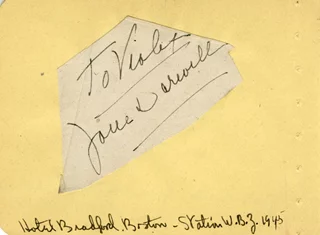 To Violet
Jane Darwell
Hotel Bradford, Boston - Station W.B.Z. 1945